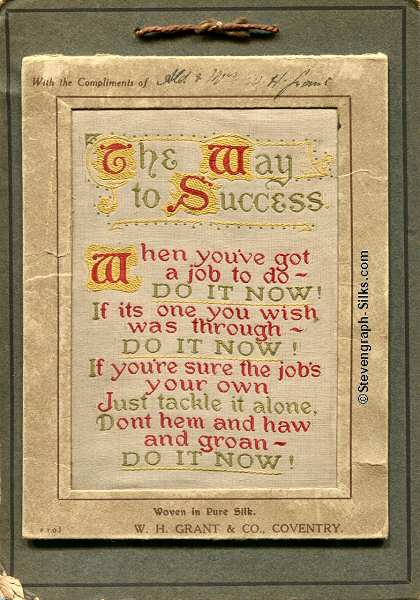 With the Compliments of Ald & Mrs W. H. Grant
The Way
to Success
When you've got
a job to do~
DO IT NOW!
If its one you wish
was through~
DO IT NOW!
If you're sure the job's
your own
Just tackle it alone,
Dont hem and haw
and groan~
DO IT NOW!
Woven in Pure Silk.
W. H. GRANT & CO., COVENTRY.
©Stevengraph-Silks.com